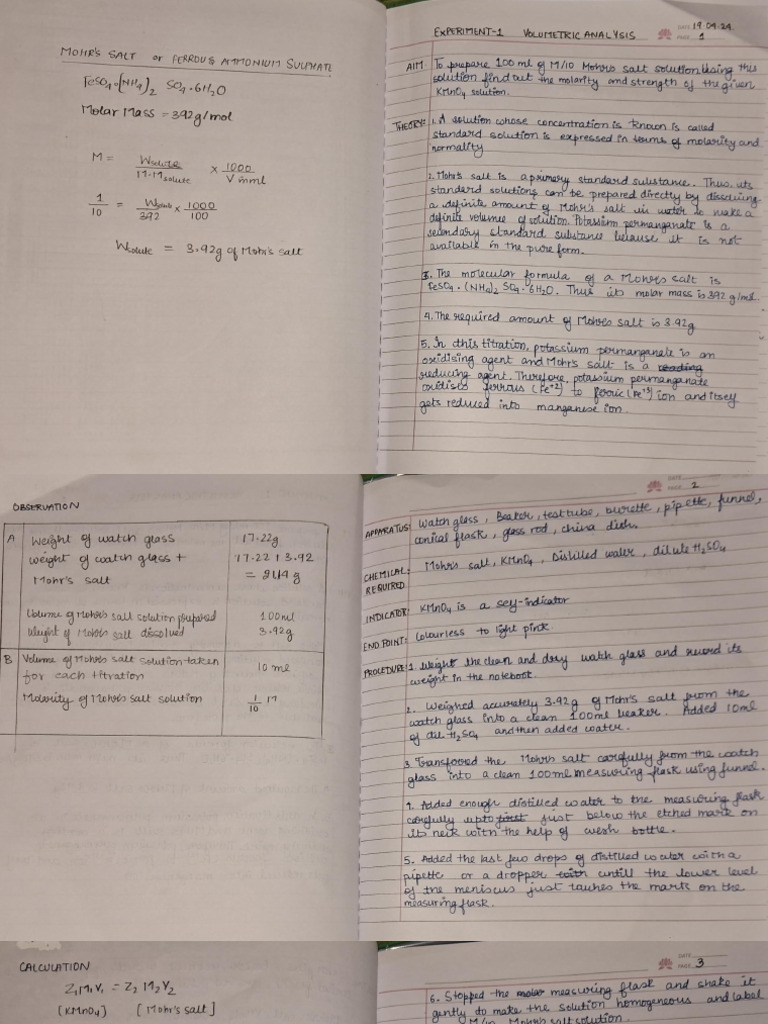 MOHR'S SALT or FERROUS AMMONIUM SULPHATE
FeSO4.(NH4)2 SO4.6H2O
Molar Mass = 392g/mol
M = Wsolute / M.Msolute × 1000 / V in ml
1/10 = Wsolute / 392 × 1000 / 100
Wsolute = 3.92g of Mohr's salt
EXPERIMENT-1 VOLUMETRIC ANALYSIS
DATE 19.04.24
PAGE 1
AIM: To prepare 100 ml of M/10 Mohrs salt solution. Using this
solution find out the molarity and strength of the given
KMnO4 solution.
THEORY: 1. A solution whose concentration is known is called
standard solution is expressed in terms of molarity and
normality
2. Mohr's salt is a primary standard substance. Thus, its
standard solutions can be prepared directly by dissolving
a definite amount of Mohr's salt in water to make a
definite volume of solution. Potassium permanganate is a
secondary standard substance because it is not
available in the pure form.
3. The molecular formula of a Mohrs salt is
FeSO4.(NH4)2 SO4.6H2O. Thus its molar mass is 392 g/mol.
4. The required amount of Mohrs salt is 3.92g
5. In this titration, potassium permanganate is an
oxidising agent and Mohr's salt is a
reducing agent. Therefore, potassium permanganate
oxidises ferrous (Fe+2) to ferric (Fe+3) ion and itself
gets reduced into manganese ion.
OBSERVATION
A Weight of watch glass 17.22g
weight of watch glass + 17.22 + 3.92
Mohr's salt = 21.14 g
Volume of Mohrs salt solution prepared 100ml
Weight of Mohr's salt dissolved 3.92g
B Volume of Mohr's salt solution taken 10 ml
for each titration
Molarity of Mohr's salt solution 1/10 M
DATE
PAGE 2
APPARATUS: Watch glass, Beaker, test tube, burette, pipette, funnel,
conical flask, glass rod, china dish.
CHEMICAL REQUIRED: Mohr's salt, KMnO4, Distilled water, dilute H2SO4
INDICATOR: KMnO4 is a self-indicator
END POINT: Colourless to light pink.
PROCEDURE: 1. Weight the clean and dry watch glass and record its
weight in the notebook.
2. Weighed accurately 3.92g of Mohr's salt from the
watch glass into a clean 100ml beaker. Added 10ml
of dil. H2SO4 and then added water.
3. Transfered the Mohrs salt carefully from the watch
glass into a clean 100ml measuring flask using funnel.
4. Added enough distilled water to the measuring flask
carefully upto just below the etched mark on
its neck with the help of wash bottle.
5. Added the last few drops of distilled water with a
pipette or a dropper untill the lower level
of the meniscus just touches the mark on the
measuring flask.
CALCULATION
Z1M1V1 = Z2M2V2
[KMnO4] [Mohr's salt]
DATE
PAGE 3
6. Stopped the measuring flask and shake it
gently to make the solution homogeneous and label
M/10 Mohr's salt solution.